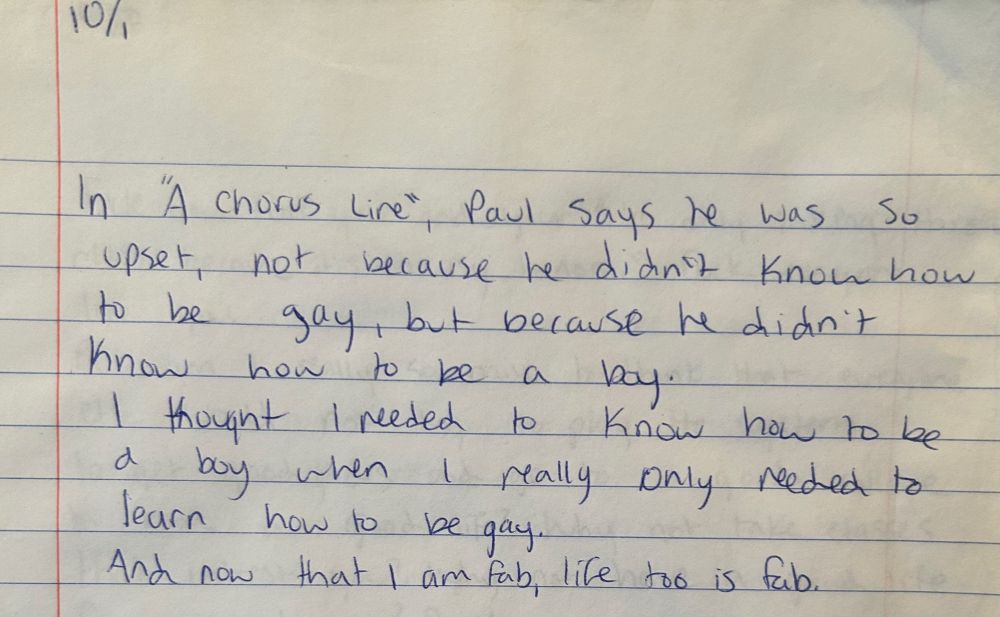 10/1
In "A Chorus Line", Paul says he was so
upset, not because he didn't know how
to be gay, but because he didn't
know how to be a boy.
I thought I needed to know how to be
a boy when I really only needed to
learn how to be gay.
And now that I am fab, life too is fab.